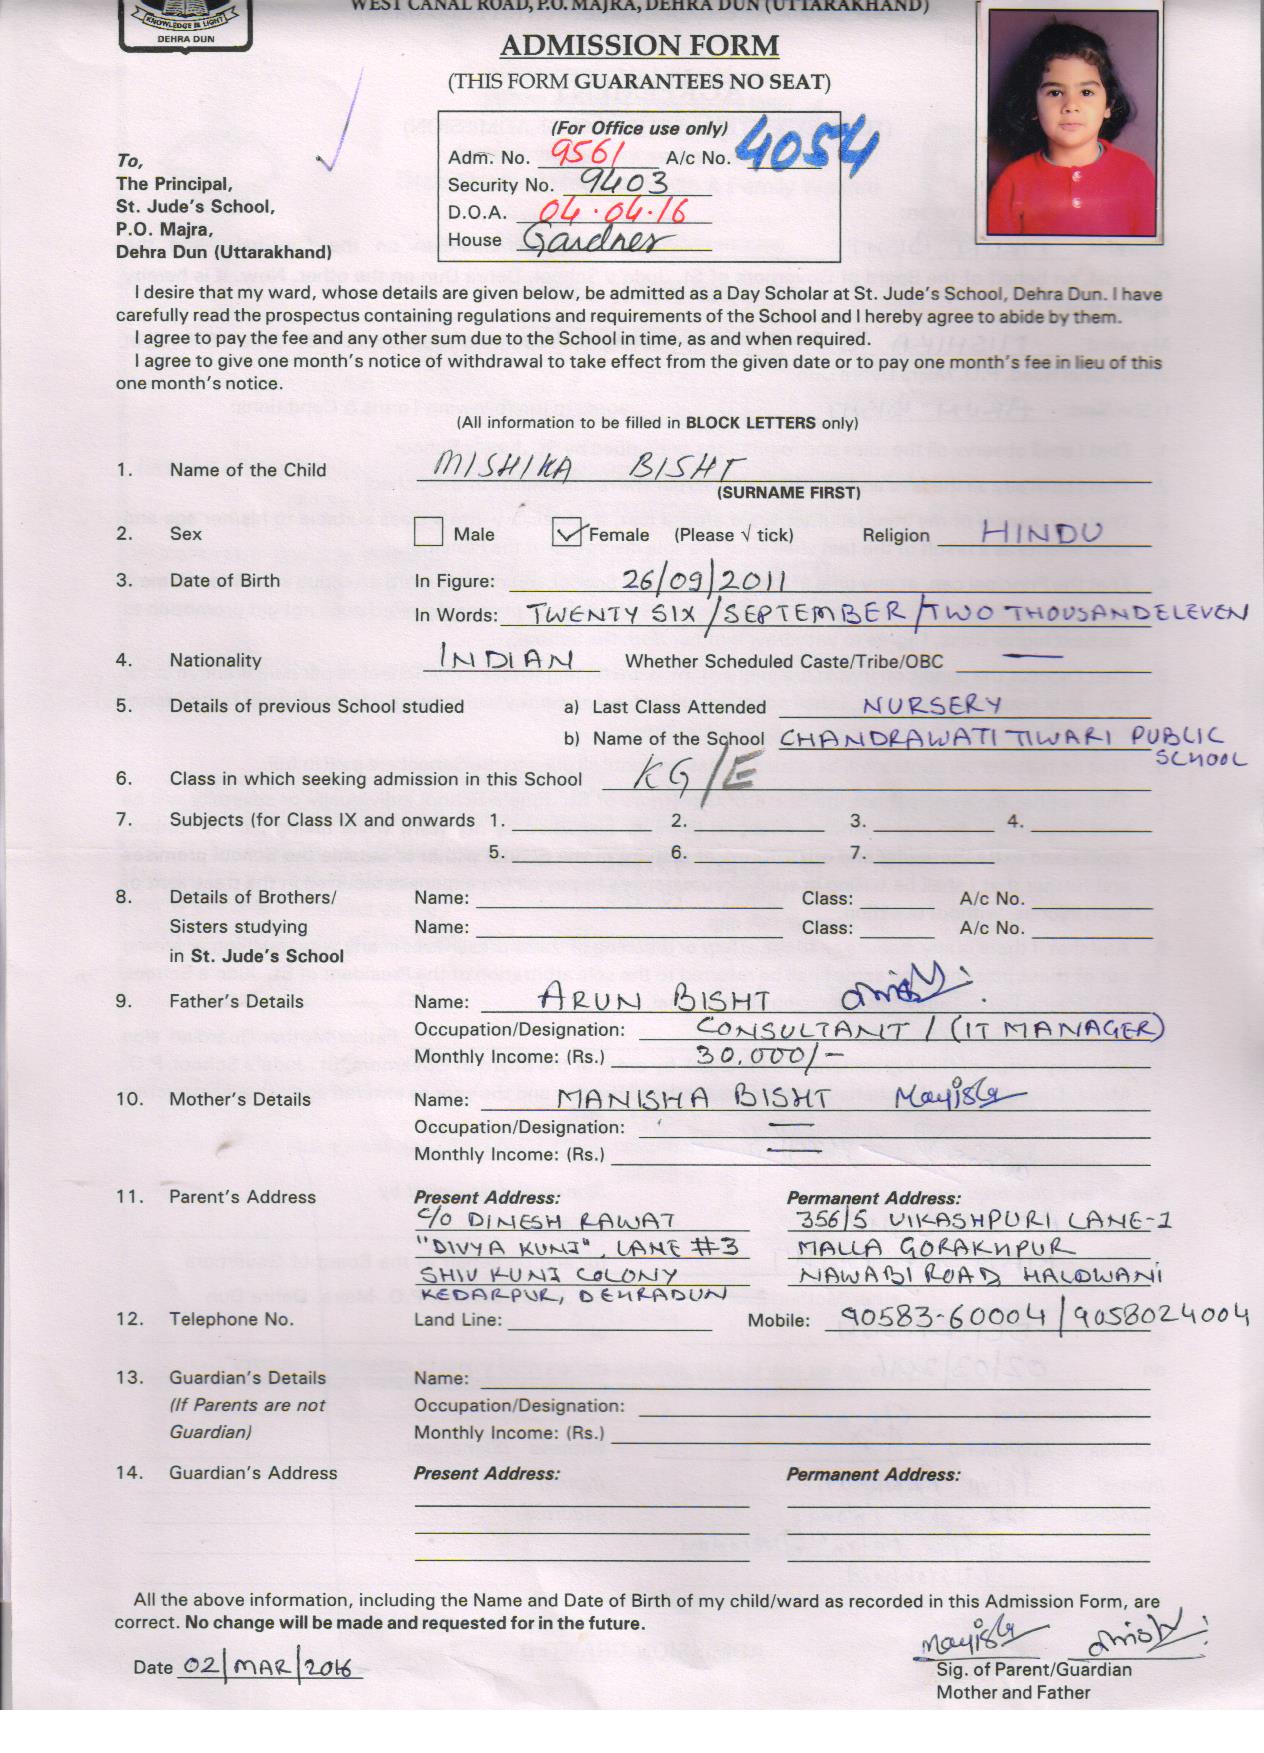 WEST CANAL ROAD, P.O. MAJRA, DEHRA DUN (UTTARAKHAND)
KNOWLEDGE IS LIGHT
DEHRA DUN
ADMISSION FORM
(THIS FORM GUARANTEES NO SEAT)
(For Office use only)
Adm. No. 9561 A/c No. 4054
Security No. 9403
D.O.A. 04.04.16
House Gardner
To,
The Principal,
St. Jude's School,
P.O. Majra,
Dehra Dun (Uttarakhand)
I desire that my ward, whose details are given below, be admitted as a Day Scholar at St. Jude's School, Dehra Dun. I have
carefully read the prospectus containing regulations and requirements of the School and I hereby agree to abide by them.
I agree to pay the fee and any other sum due to the School in time, as and when required.
I agree to give one month's notice of withdrawal to take effect from the given date or to pay one month's fee in lieu of this
one month's notice.
(All information to be filled in BLOCK LETTERS only)
1. Name of the Child MISHIKA BISHT
(SURNAME FIRST)
2. Sex Male Female (Please √ tick) Religion HINDU
3. Date of Birth In Figure: 26/09/2011
In Words: TWENTY SIX/SEPTEMBER/TWO THOUSAND ELEVEN
4. Nationality INDIAN Whether Scheduled Caste/Tribe/OBC —
5. Details of previous School studied a) Last Class Attended NURSERY
b) Name of the School CHANDRAWATI TIWARI PUBLIC
SCHOOL
6. Class in which seeking admission in this School KG/E
7. Subjects (for Class IX and onwards 1. 2. 3. 4.
5. 6. 7.
8. Details of Brothers/ Name: Class: A/c No.
Sisters studying Name: Class: A/c No.
in St. Jude's School
9. Father's Details Name: ARUN BISHT
Occupation/Designation: CONSULTANT / (IT MANAGER)
Monthly Income: (Rs.) 30,000/-
10. Mother's Details Name: MANISHA BISHT
Occupation/Designation: —
Monthly Income: (Rs.) —
11. Parent's Address Present Address: Permanent Address:
C/O DINESH RAWAT 356/5 VIKASHPURI LANE-1
"DIVYA KUNJ", LANE #3 MALLA GORAKHPUR
SHIV KUNJ COLONY NAWABI ROAD HALDWANI
KEDARPUR, DEHRADUN
12. Telephone No. Land Line: Mobile: 90583-60004/9058024004
13. Guardian's Details Name:
(If Parents are not Occupation/Designation:
Guardian) Monthly Income: (Rs.)
14. Guardian's Address Present Address: Permanent Address:
All the above information, including the Name and Date of Birth of my child/ward as recorded in this Admission Form, are
correct. No change will be made and requested for in the future.
Date 02/MAR/2016
Sig. of Parent/Guardian
Mother and Father